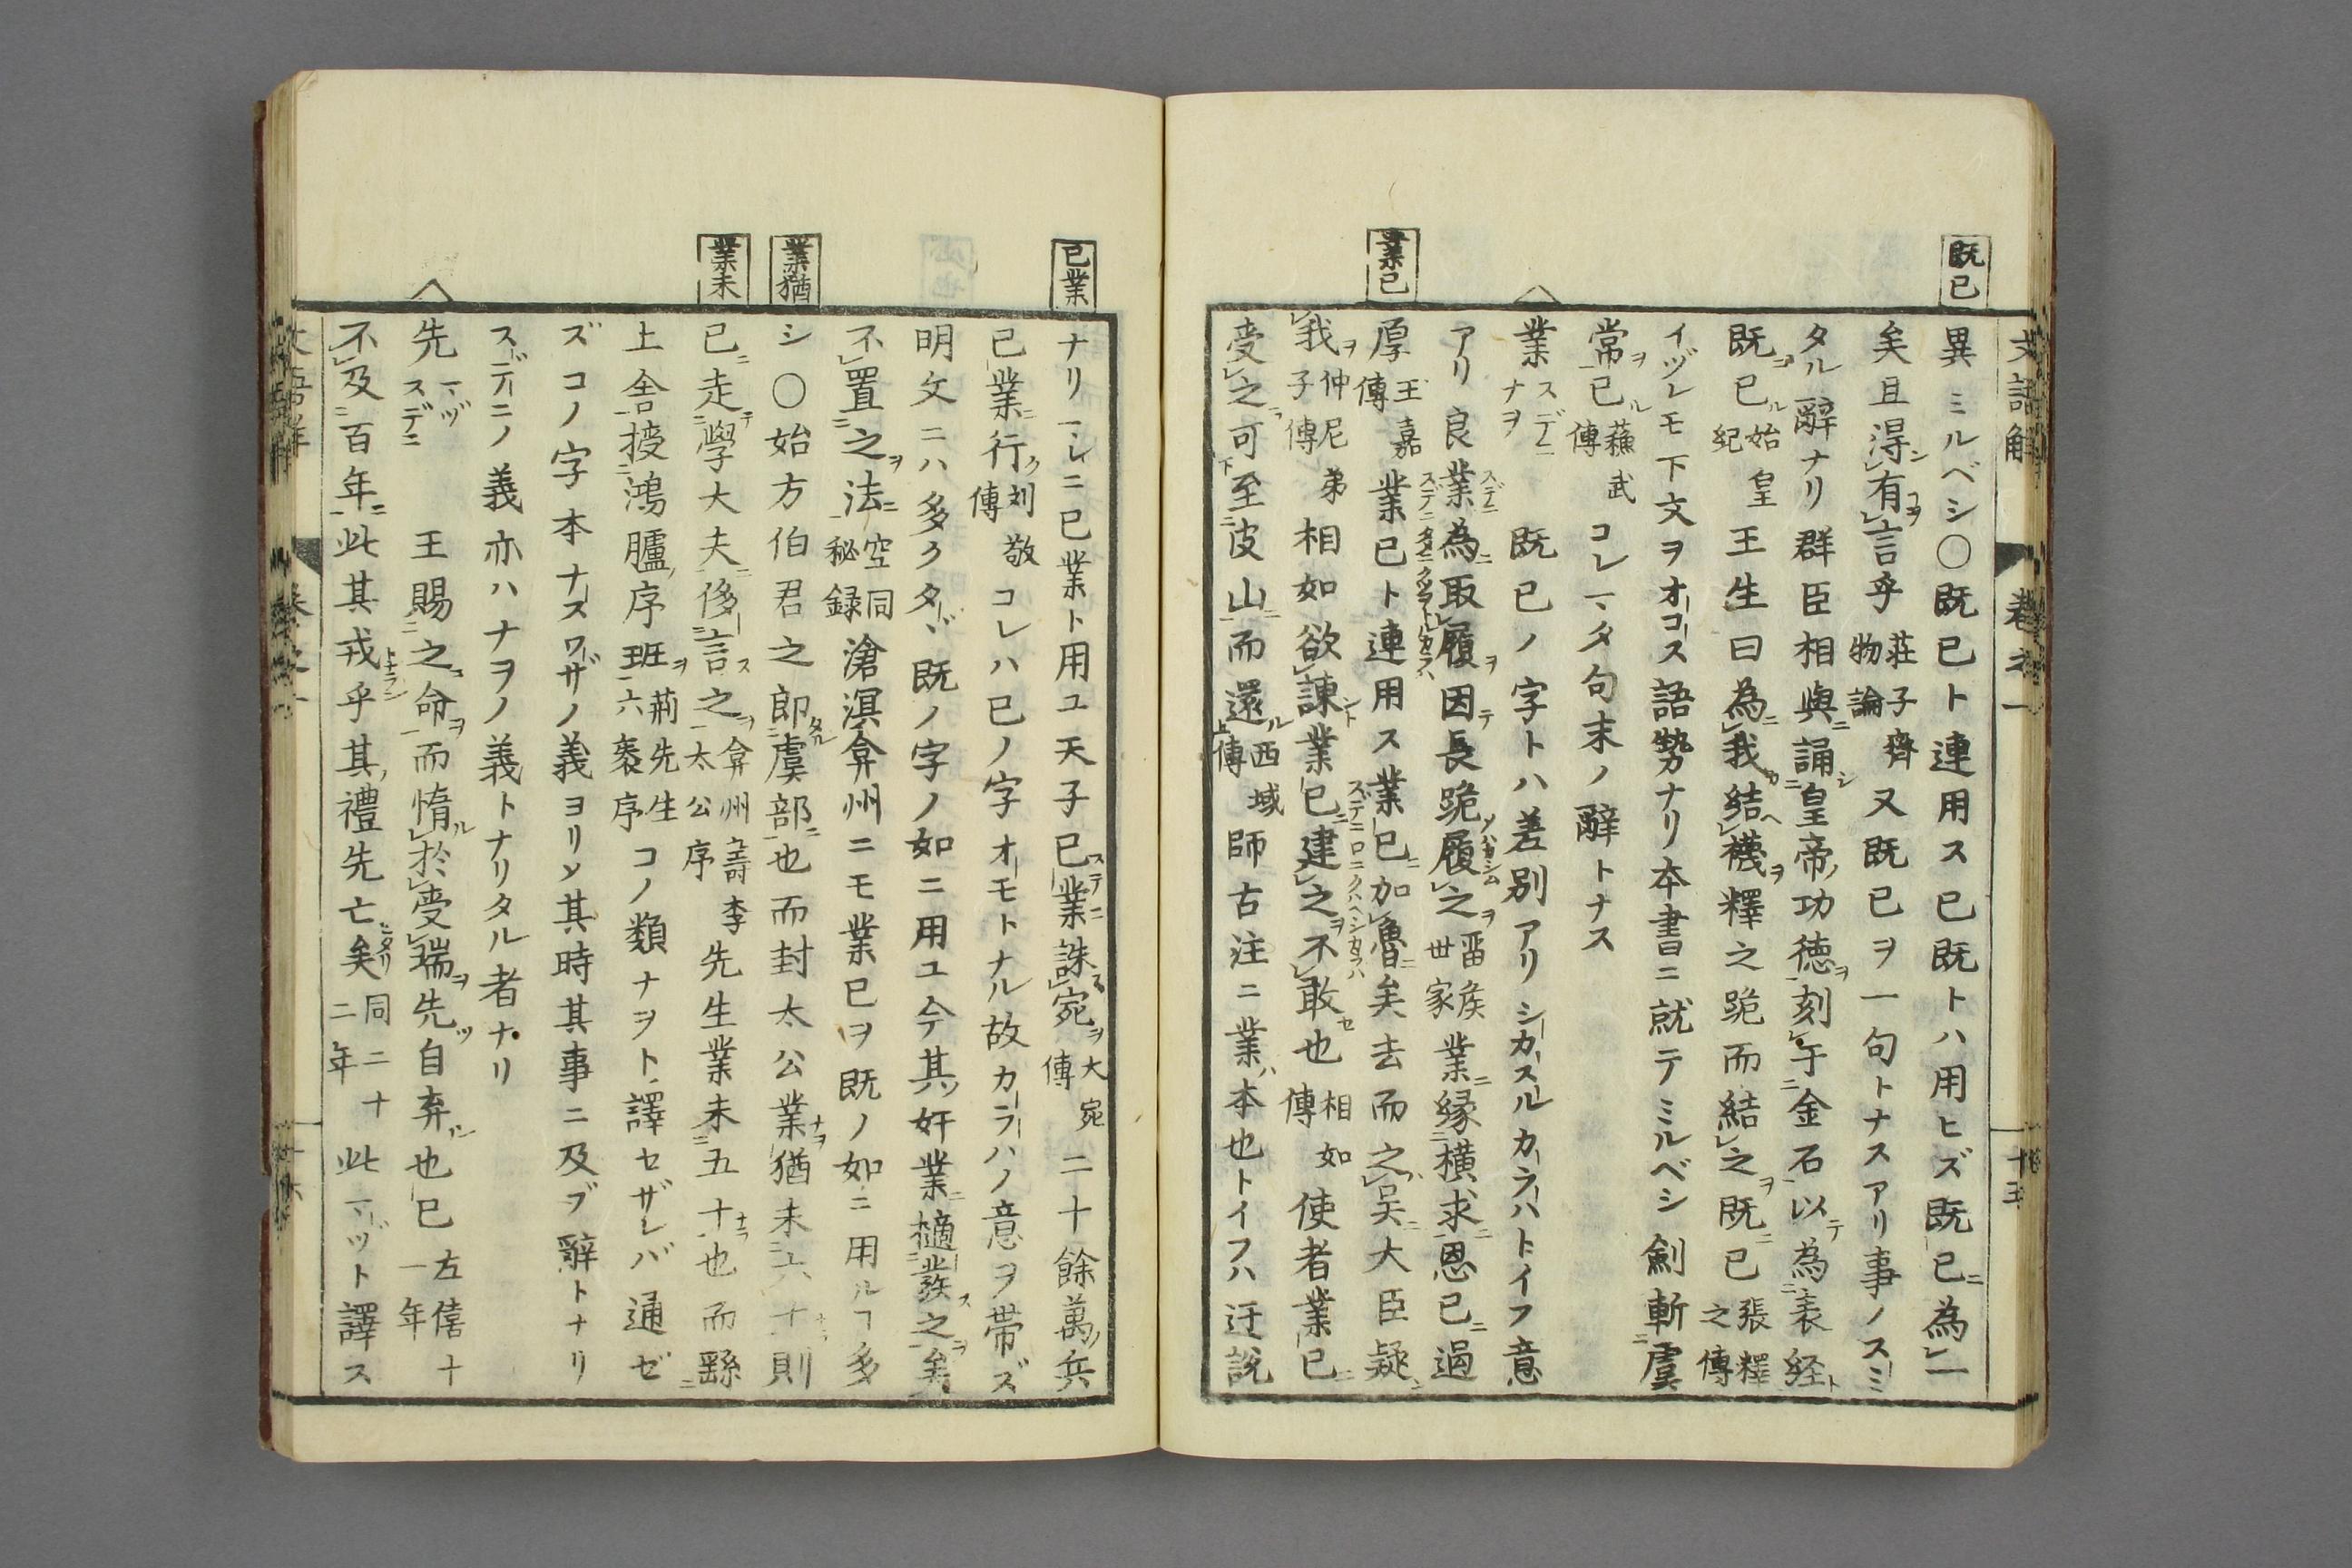 既已
異ミルベシ〇既已ト連用ス已既トハ用ヒズ既已為一
矣且得有言乎 荘子齊物論 又既已ヲ一句トナスアリ事ノスミ
タル辭ナリ群臣相與誦皇帝功徳刻于金石以為表経
既已 始皇紀 王生曰為我結襪釋之跪而結之既已 張釋之傳
イヅレモ下文ヲオコス語勢ナリ本書ニ就テミルベシ劍斬虞
常已 蘓武傳 コレマタ句末ノ辭トナス
業 スデニ ナヲ 既已ノ字トハ差別アリシカスルカラハトイフ意
アリ良業為取履因長跪履之 畱矦世家 業縁横求恩已過
業已
厚 王嘉傳 業已ト連用ス業已加魯矣去而之呉大臣疑
我 仲尼弟子傳 相如欲諌業已建之不敢也 相如傳 使者業已
受之可至皮山而還 西域上傳 師古注ニ業本也トイフハ迂説
文語解 巻之一 十五
已業
ナリマレニ已業ト用ユ天子已業誅宛 大宛傳 二十餘萬兵
已業行 刘敬傳 コレハ已ノ字オモトナル故カラハノ意ヲ帯ズ
明文ニハ多クタヾ既ノ字ノ如ニ用ユ今其奸業擿發之矣
不置之法 空同秘録 滄溟弇州ニモ業已ヲ既ノ如ニ用ルヿ多
業猶
シ〇始方伯君之郎虞部也而封太公業猶未六十則
業未
已走學大夫侈言之 弇州壽李太公序 先生業未五十也而繇
上舎授鴻臚序班 荊先生六袠序 コノ類ナヲト譯セザレバ通ゼ
ズコノ字本ナスワザノ義ヨリソ其時其事ニ及ブ辭トナリ
スデニノ義亦ハナヲノ義トナリタル者ナリ
先 マヅ スデニ 王賜之命而惰於受瑞先自弃也已 左僖十一年
不及百年此其戎乎其禮先亡矣 同二十二年 此マヅト譯ス